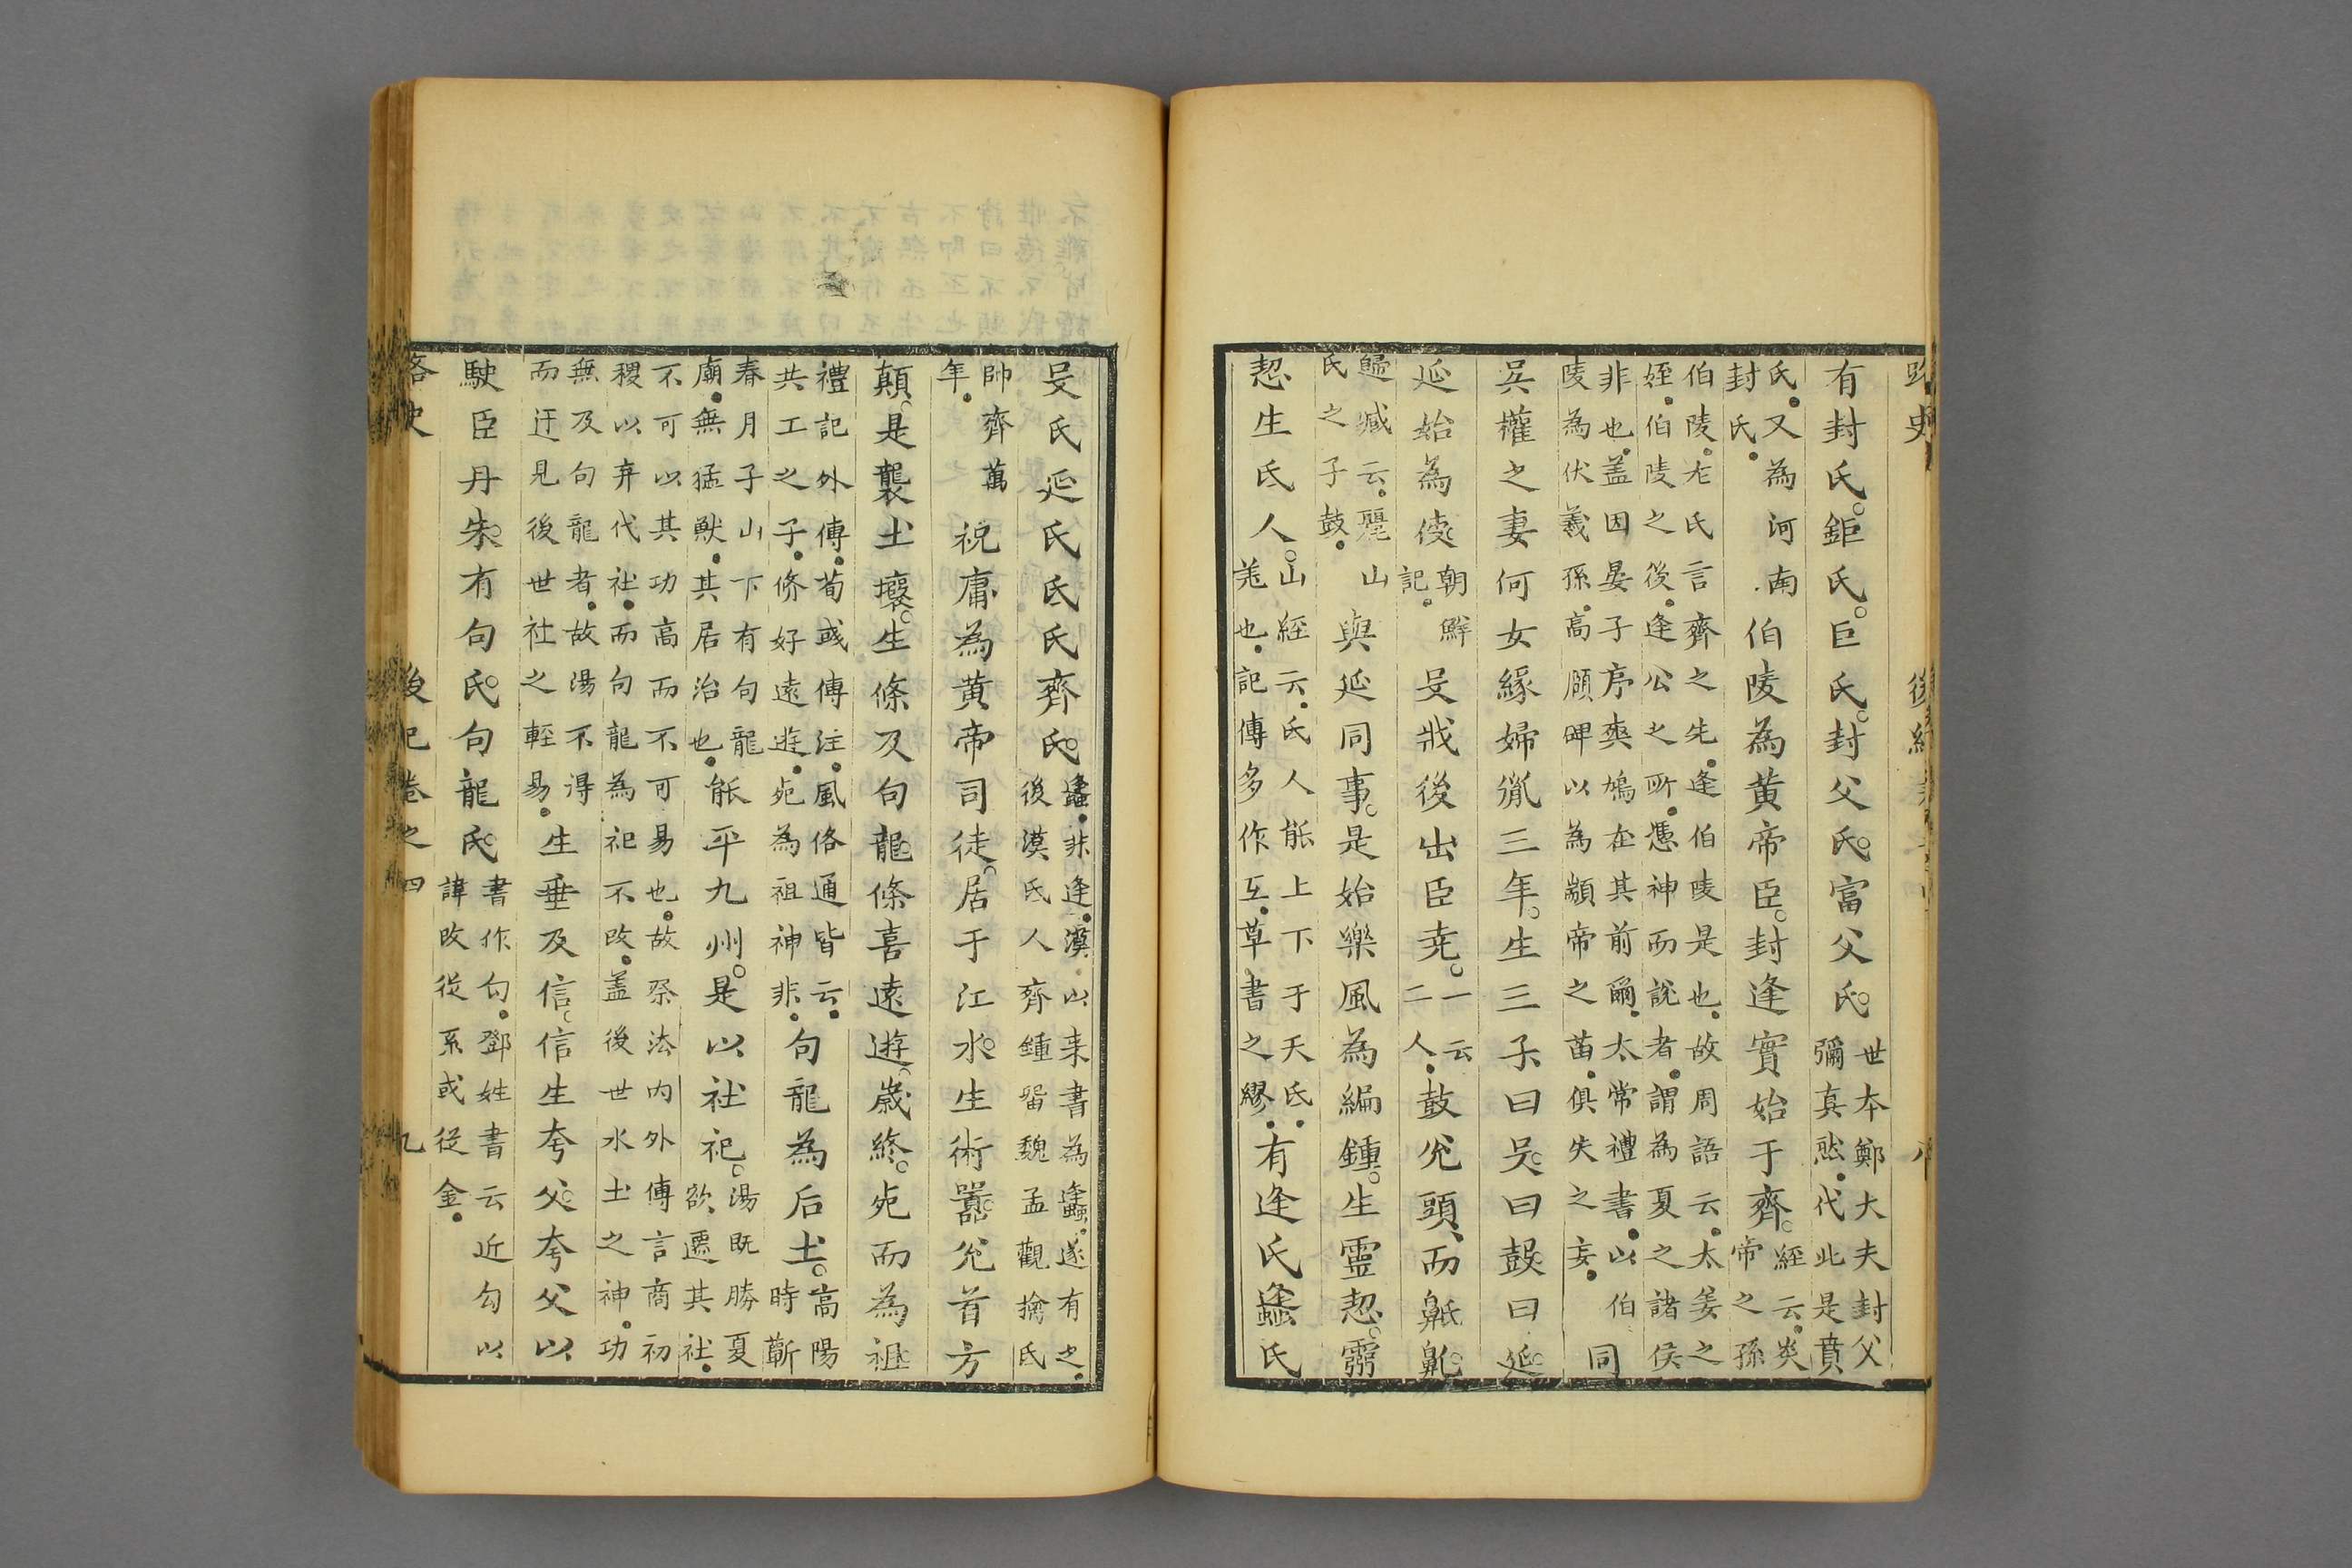 路史
有封氏鉅氏巨氏封父氏富父氏
世本鄭大夫封父
彌真愆代此是賁
氏又為河南
封氏
伯陵為黄帝臣封逢實始于齊
經云炎
帝之孫
伯陵左氏言齊之先逢伯陵是也故周語云太姜之
姪伯陵之後逢公之所憑神而說者謂為夏之諸侯
非也盖因晏子序爽鳩在其前爾太常禮書以伯
陵為伏羲孫高頎碑以為顓帝之苗俱失之妄
同
吳權之妻何女緣婦㣧三年生三子曰殳曰鼓曰延
延始為侯
朝鮮
記
殳戕後出臣堯
一云
二人
鼓兊頭而
歸臧云麗山
氏之子鼓
與延同事是始樂風為編鍾生靈恝靈
恝生氐人
山經云氐人能上下于天氐
羌也記傳多作互草書之繆
有逢氏蠭氏
殳氏延氏氐氏齊氏
蠭非逢漢以來書為蠭遂有之
後漢氐人齊鍾留魏孟觀擒氐
帥齊萬
年
祝庸為黄帝司徒居于江水生術嚻兊首方
顛是襲土壤生條及句龍條喜遠遊歲終死而為祖
禮記外傳荀彧傳注風俗通皆云
共工之子脩好遠遊死為祖神非
句龍為后土
高陽
時蘄
春月子山下有句龍
廟無猛獸其居治也
能平九州是以社祀
湯既勝夏
欲遷其社
不可以其功高而不可易也故祭法内外傳言商初
稷以弃代社而句龍為祀不改盖後世水土之神功
無及句龍者故湯不得
而迂見後世社之輕易
生垂及信信生夸父夸父以
駛臣丹朱有句氏句龍氏
書作勾鄧姓書云近勾以
諱改從系或從金
後紀卷之四
九